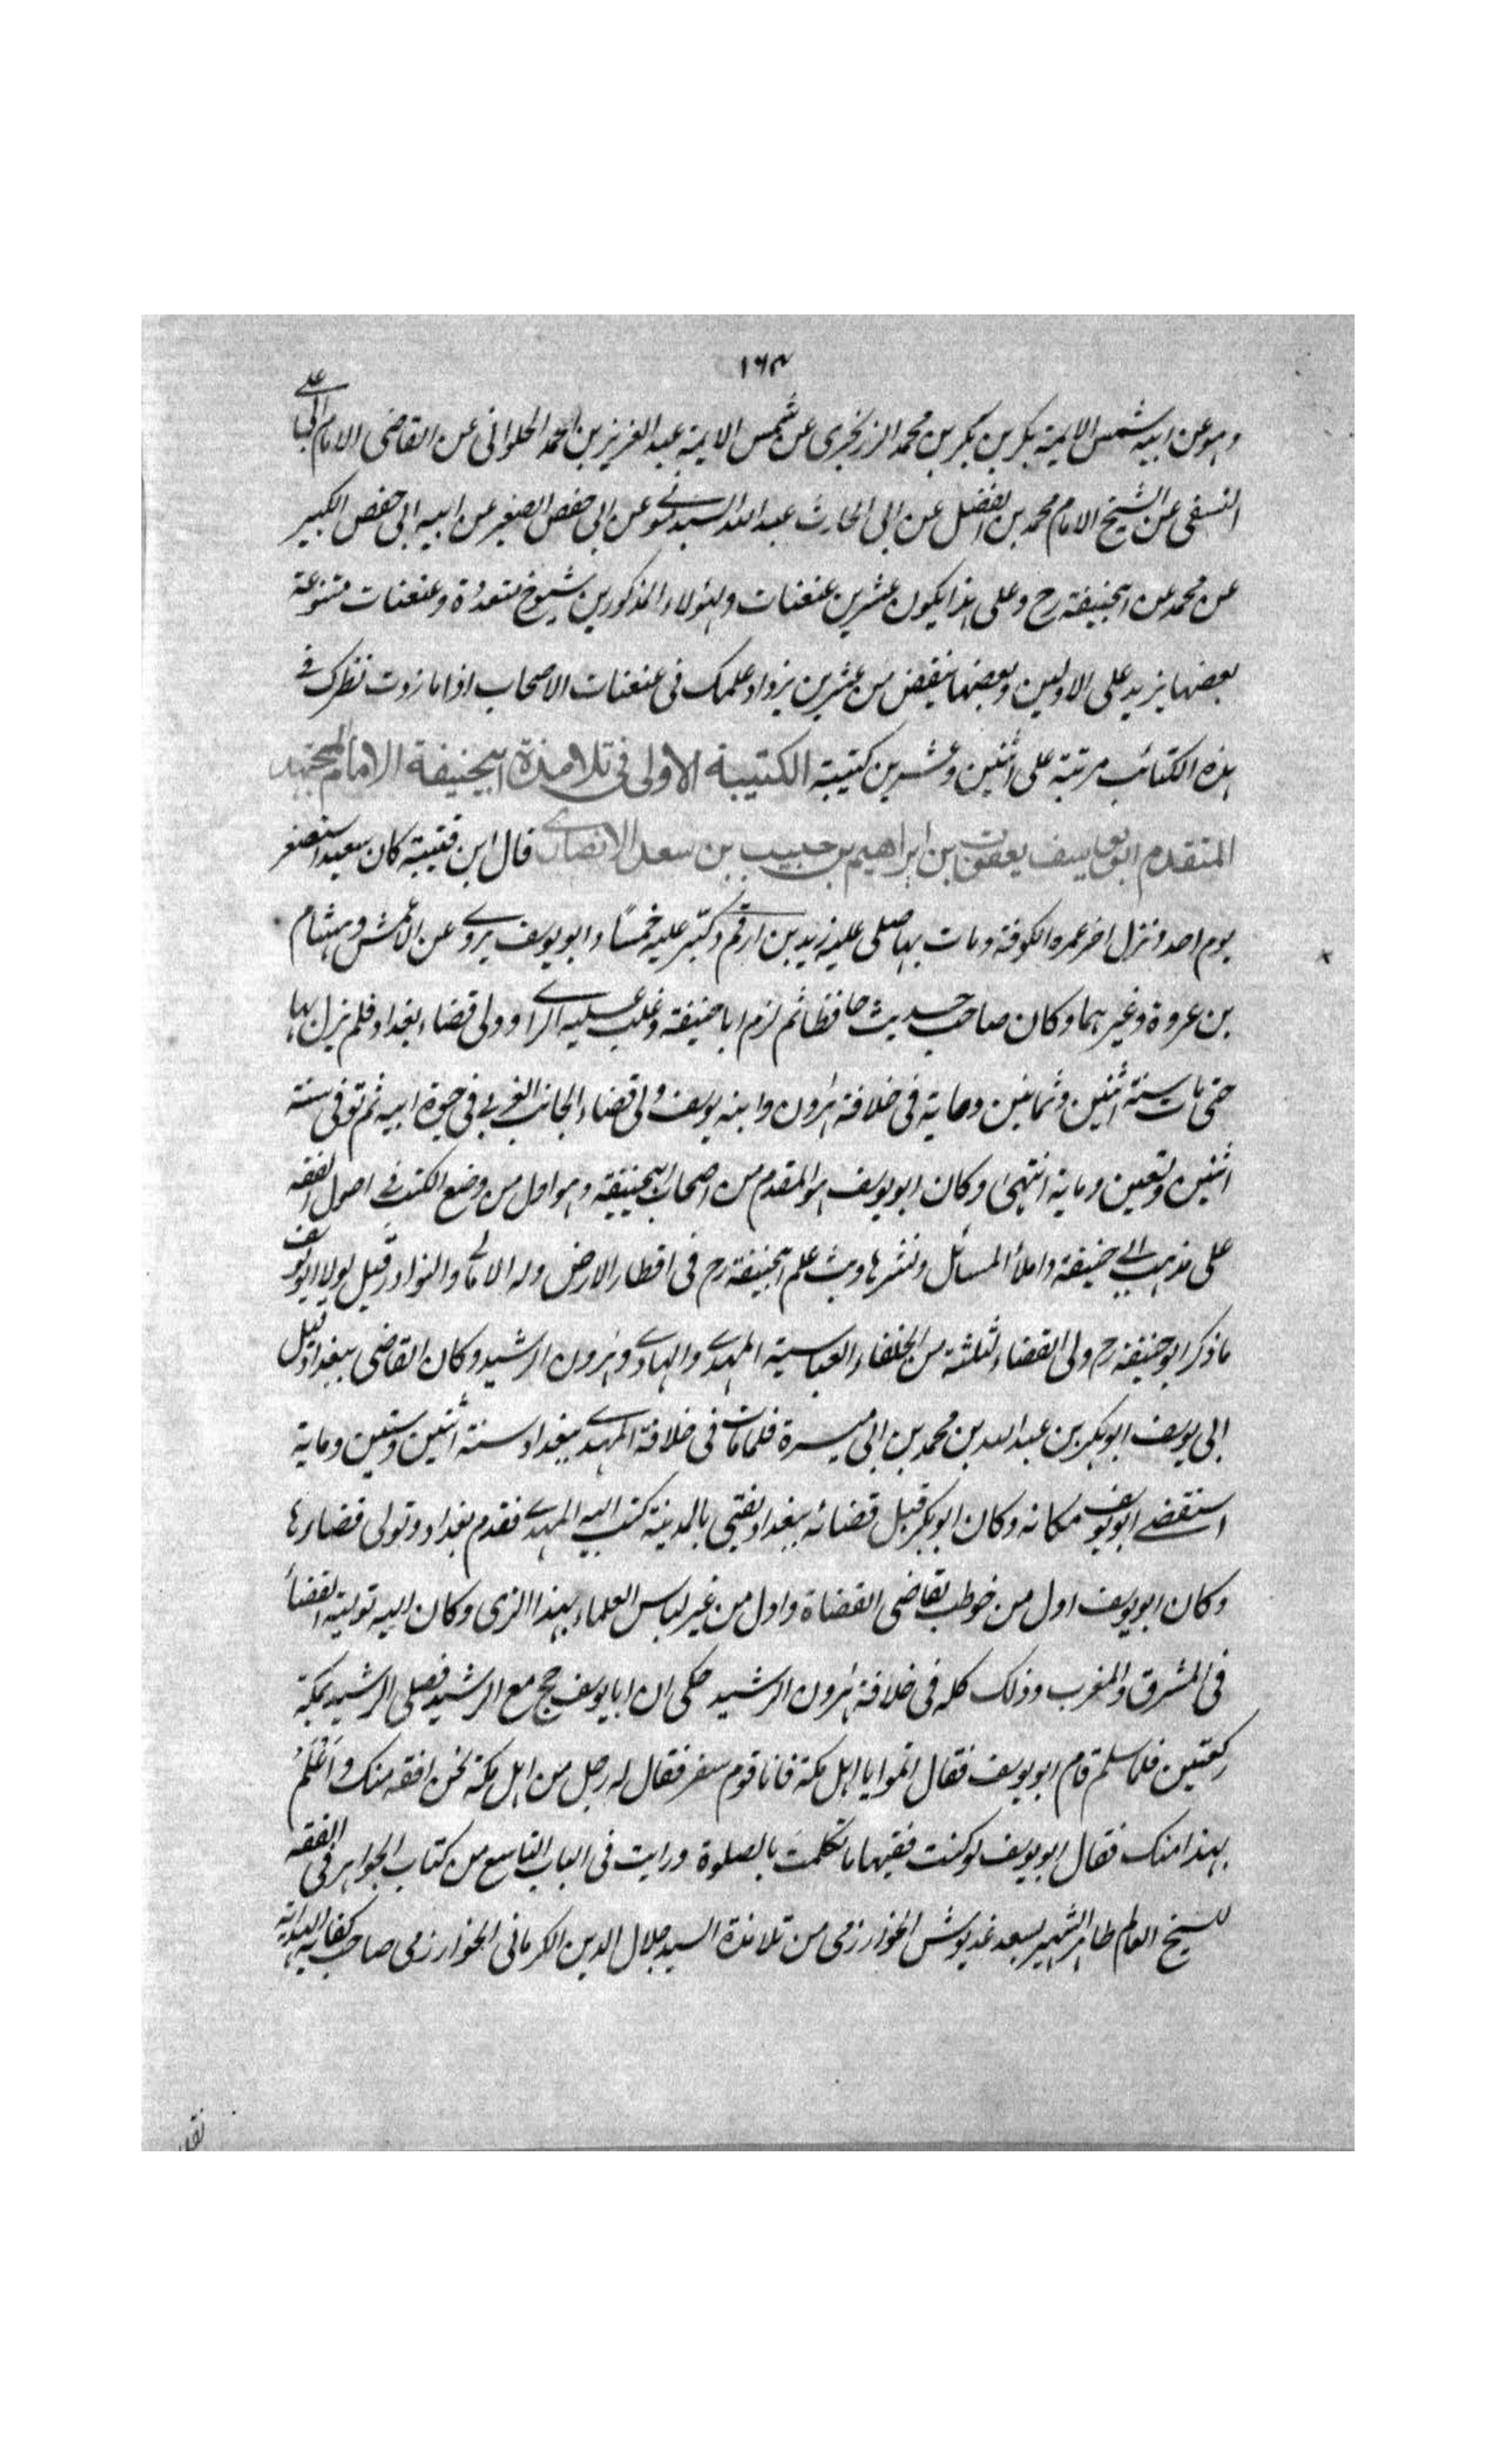 ١٦٣
وهو عن ابيه شمس الايمة بكر بن بكر بن محمد الزرنجرى عن شمس الايمة عبد العزيز بن احمد الحلوانى عن القاضى الامام ابى على
النسفى عن الشيخ الامام محمد بن الفضل عن ابى الحارث عبد الله السبذمونى عن ابى حفص الصغير عن ابيه ابى حفص الكبير
عن محمد عن ابيحنيفة رح وعلى هذا يكون عشرين عنعنات ولهؤلاء المذكورين شيوخ متعددة وعنعنات متنوعة
بعضها يزيد على الاولين وبعضها ينقض من عشرين يزداد علمك فى عنعنات الاصحاب اذا ما زدت نظرك فى
هذه الكتائب مرتبة على اثنين وعشرين كتيبة الكتيبة الاولى فى تلامذة ابيحنيفة الامام المجتهد
المتقدم ابو يوسف يعقوب بن ابراهيم بن حبيب بن سعد الانصارى قال ابن قتيبة كان سعيد استصغر
يوم احد ونزل اخر عمره الكوفة ومات بها صلى عليه زيد بن ارقم وكبّر عليه خمسًا وابو يوسف يروى عن الاعمش وهشام
بن عروة وغيرهما وكان صاحب حديث حافظا ثم لزم ابا حنيفة وغلب عليه الراى وولى قضاء بغداد فلم يزل بها
حتى مات سنة اثنين وثمانين وماية فى خلافة هٰرون وابنه يوسف ولى قضاء الجانب الغربى فى حيوة ابيه ثم توفى سنة
اثنين وتسعين وماية انتهى وكان ابو يوسف هو المقدم من اصحاب ابيحنيفة وهو اول من وضع الكتب فى اصول الفقه
على مذهب ابى حنيفة واملأ المسائل ونشرها وبث علم ابيحنيفة رح فى اقطار الارض وله الامالى والنوادر قيل لولا ابو يوسف
ما ذكر ابو حنيفة رح ولى القضاء لثلثة من الخلفاء العباسية المهدى والهادى وهٰرون الرشيد وكان القاضى ببغداد قبل
ابى يوسف ابو بكر بن عبد الله بن محمد بن ابى ميسرة فلما مات فى خلافة المهدى ببغداد سنة اثنين وستين وماية
استقضى ابو يوسف مكانه وكان ابو بكر قبل قضائه ببغداد يفتى بالمدينة كتب اليه المهدى فقدم بغداد وتولى قضاءها
وكان ابو يوسف اول من خوطب بقاضى القضاة واول من غير لباس العلماء بهذا الزى وكان اليه تولية القضاء
فى المشرق والمغرب وذلك كله فى خلافة هٰرون الرشيد حكى ان ابا يوسف حج مع الرشيد فصلى الرشيد بمكة
ركعتين فلما سلم قام ابو يوسف فقال اتموا يا اهل مكة فانا قوم سفر فقال له رجل من اهل مكة نحن افقه منك واعلم
بهذا منك فقال ابو يوسف لو كنت فقيها ما تكلمت بالصلوة ورايت فى الباب التاسع من كتاب الجواهر فى الفقه
للشيخ العالم طاهر الشهير بسعد غديوش الخوارزمى من تلامذة السيد جلال الدين الكرمانى الخوارزمى صاحب كفاية الهداية